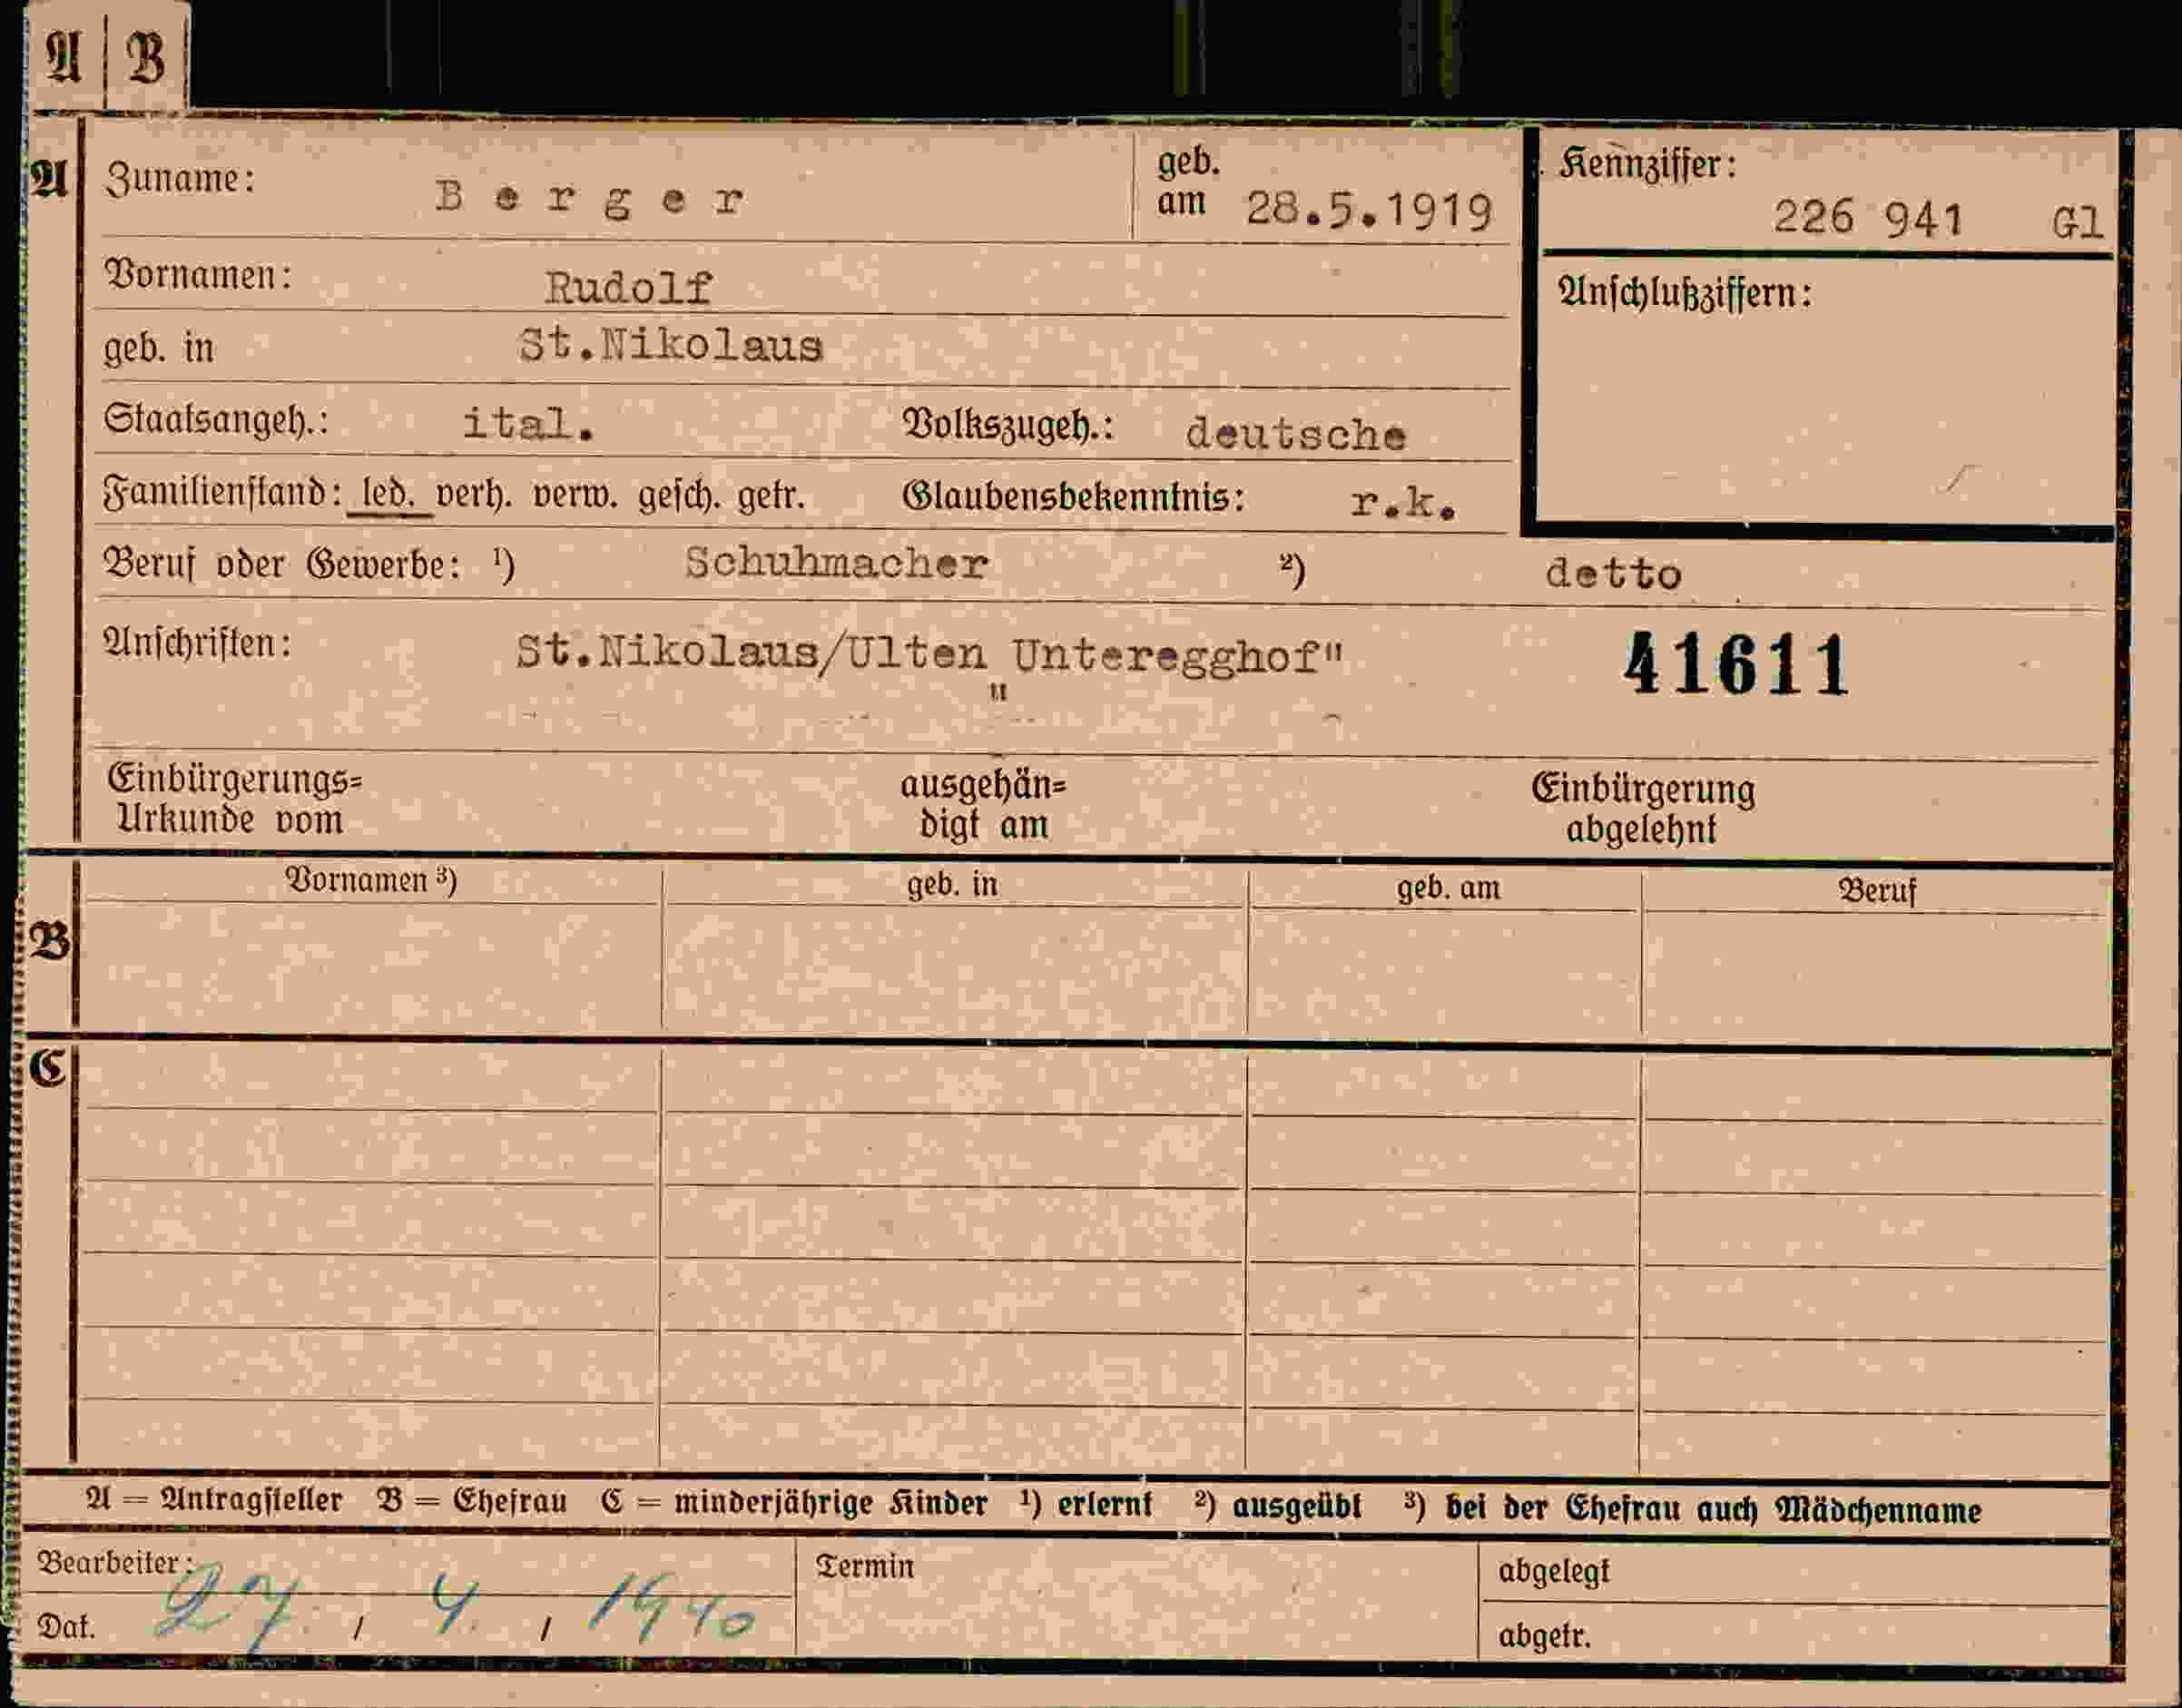 A | B
A
Zuname: Berger geb. am 28.5.1919
Kennziffer: 226 941 Gl
Vornamen: Rudolf
Anschlußziffern:
geb. in St.Nikolaus
Staatsangeh.: ital. Volkszugeh.: deutsche
Familienstand: led. verh. verw. gesch. getr. Glaubensbekenntnis: r.k.
Beruf oder Gewerbe: ¹) Schuhmacher ²) detto
Anschriften: St.Nikolaus/Ulten "Unteregghof" 41611
Einbürgerungs= ausgehän= Einbürgerung
Urkunde vom digt am abgelehnt
B
Vornamen ³) geb. in geb. am Beruf
C
A = Antragsteller B = Ehefrau C = minderjährige Kinder ¹) erlernt ²) ausgeübt ³) bei der Ehefrau auch Mädchenname
Bearbeiter: Termin abgelegt
Dat. 27. / 4. / 1940 abgetr.